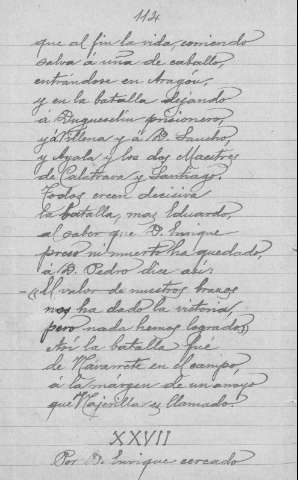 114
que al fin la vida, corriendo
salva á uña de caballo,
entrándose en Aragón,
y en la batalla dejando
á Duguesclin prisionero,
y á Villena y á D. Sancho,
y Ayala y los dos Maestres
de Calatrava y Santiago.
Todos creen decisiva
la batalla, mas Eduardo,
al saber que D. Enrique
preso ni muerto ha quedado,
á D. Pedro dice así:
—«El valor de nuestros brazos
nos ha dado la victoria,
pero nada hemos logrado»
Así la batalla fué
de Navarrete en el campo,
á la márgen de un arroyo
que Najerilla es llamado.
XXVII
Por D. Enrique cercado